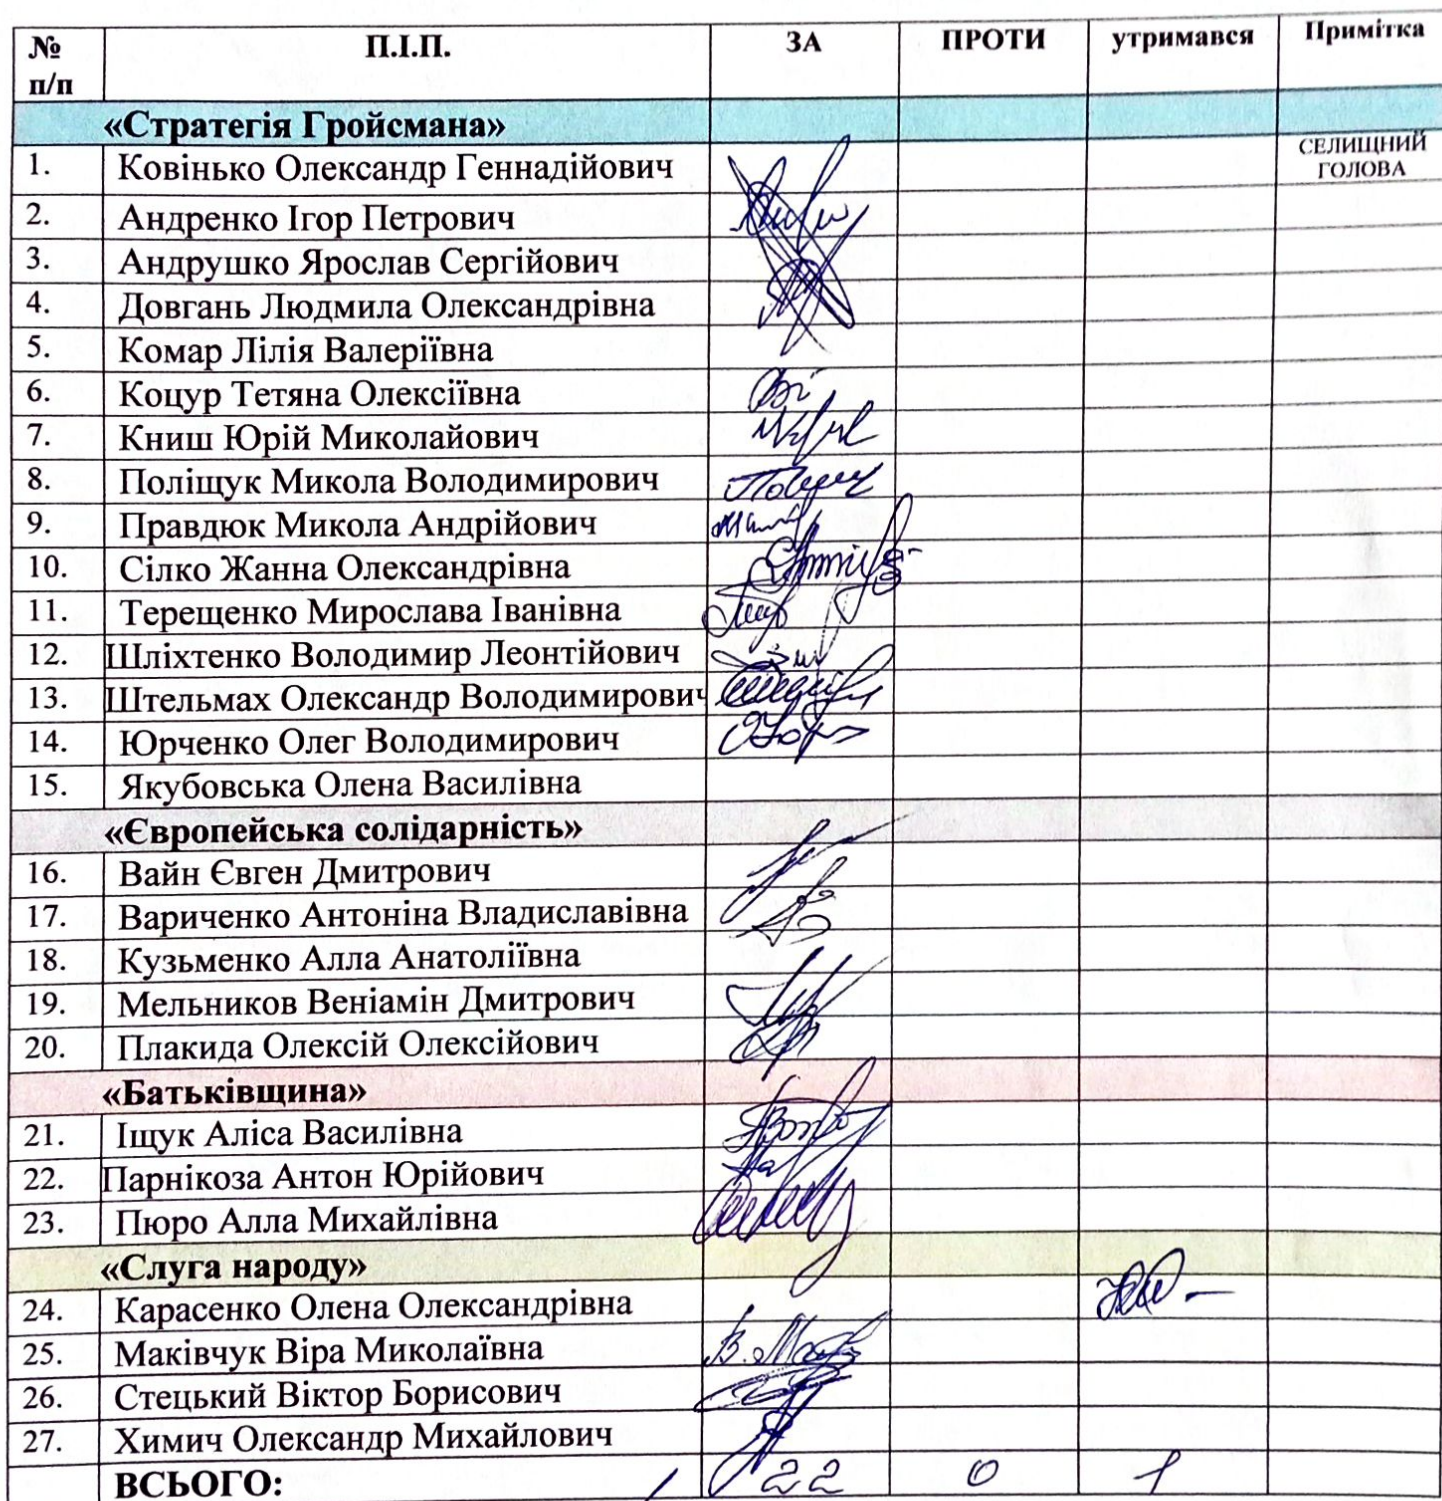 № п/п П.І.П. ЗА ПРОТИ утримався Примітка
«Стратегія Гройсмана»
1. Ковінько Олександр Геннадійович СЕЛИЩНИЙ ГОЛОВА
2. Андренко Ігор Петрович
3. Андрушко Ярослав Сергійович
4. Довгань Людмила Олександрівна
5. Комар Лілія Валеріївна
6. Коцур Тетяна Олексіївна
7. Книш Юрій Миколайович
8. Поліщук Микола Володимирович
9. Правдюк Микола Андрійович
10. Сілко Жанна Олександрівна
11. Терещенко Мирослава Іванівна
12. Шліхтенко Володимир Леонтійович
13. Штельмах Олександр Володимирович
14. Юрченко Олег Володимирович
15. Якубовська Олена Василівна
«Європейська солідарність»
16. Вайн Євген Дмитрович
17. Вариченко Антоніна Владиславівна
18. Кузьменко Алла Анатоліївна
19. Мельников Веніамін Дмитрович
20. Плакида Олексій Олексійович
«Батьківщина»
21. Іщук Аліса Василівна
22. Парнікоза Антон Юрійович
23. Пюро Алла Михайлівна
«Слуга народу»
24. Карасенко Олена Олександрівна
25. Маківчук Віра Миколаївна
26. Стецький Віктор Борисович
27. Химич Олександр Михайлович
ВСЬОГО: 22 0 1